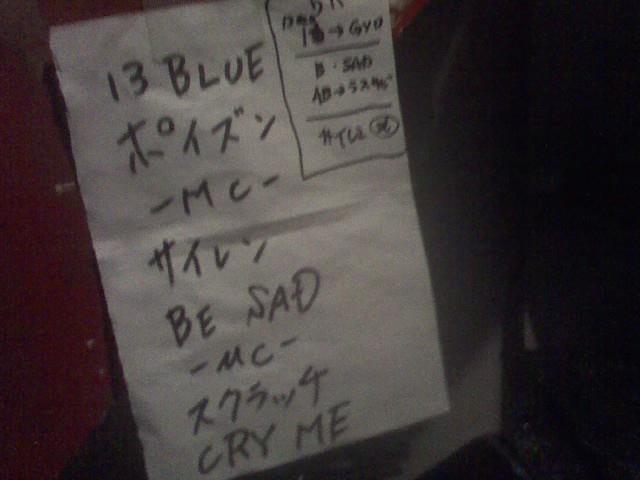 13 BLUE
ポイズン
-MC-
サイレン
BE SAD
-MC-
スクラッチ
CRY ME
→ GYO
B・SAD
サイレン